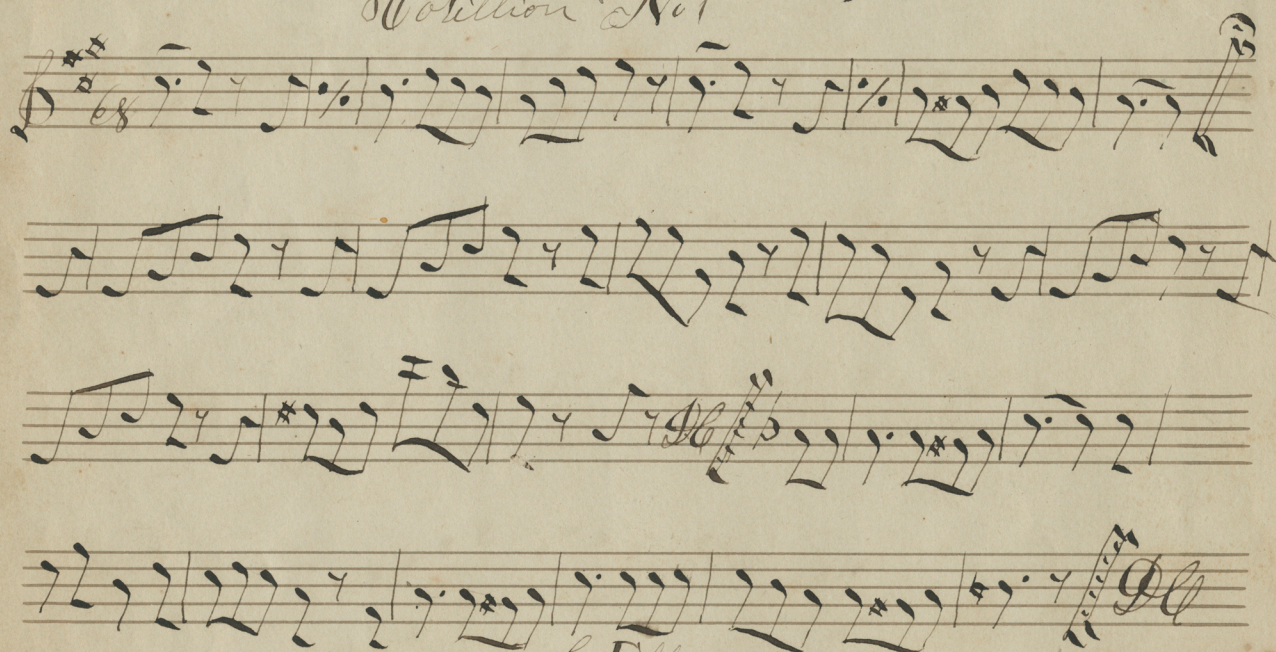 Cotillion No 1
68
DC
DC